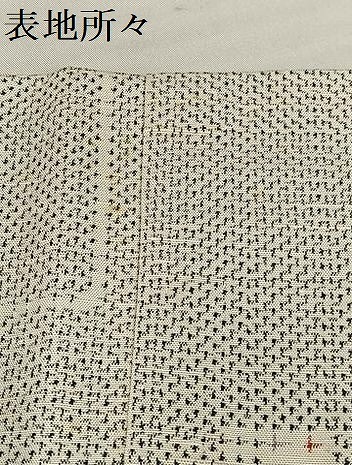 表地所々